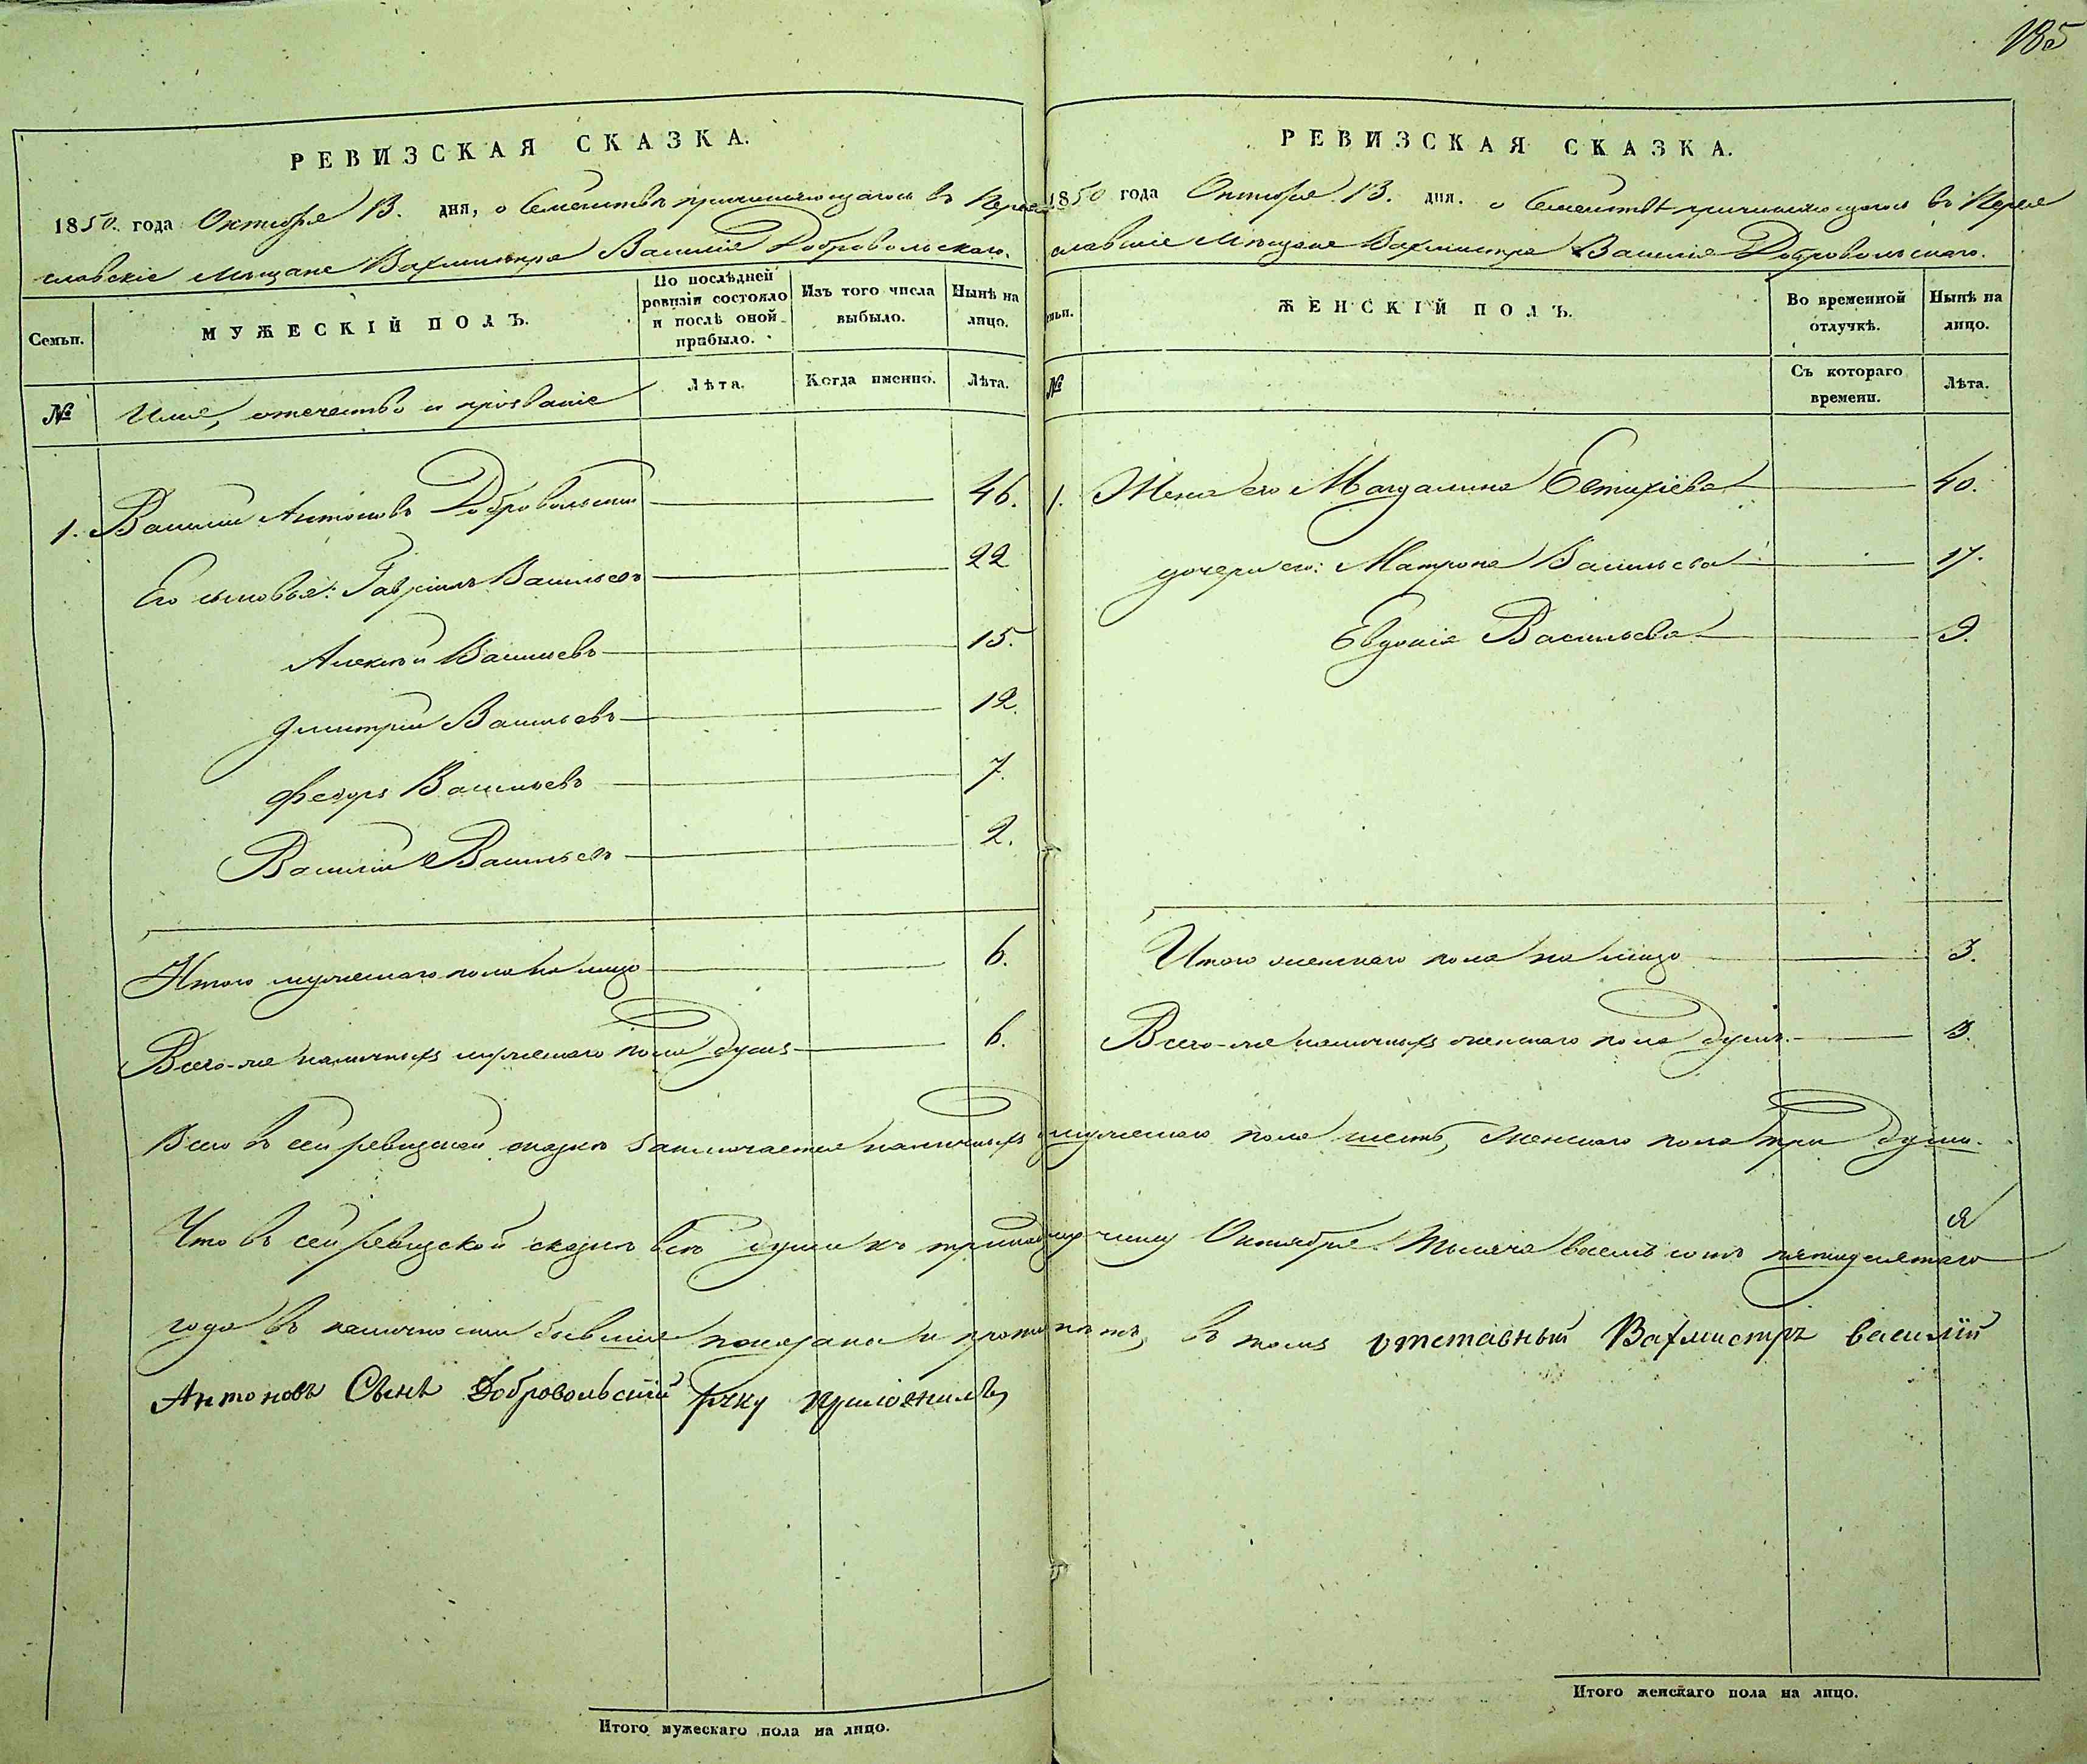 185
РЕВИЗСКАЯ СКАЗКА.
1850. года Октября 13. дня, о Семействѣ причисляющагося въ Перея
славскіе Мѣщане Вахмистра Василія Добровольскаго.
Семьи.
МУЖЕСКІЙ ПОЛЪ.
По послѣдней ревизіи состояло и послѣ оной прибыло.
Изъ того числа выбыло.
Нынѣ на лицо.
№
Имя, отечество и прозваніе
Лѣта.
Когда именно.
Лѣта.
1. Василій Антоновъ Добровольскій 46.
Его сыновья: Гавріилъ Васильевъ 22
Алексѣй Васильевъ 15.
Дмитрій Васильевъ 12.
Федоръ Васильевъ 7.
Василій Васильевъ 2.
Итого мужескаго пола на лицо 6.
Всего-же наличныхъ мужескаго пола душъ 6.
РЕВИЗСКАЯ СКАЗКА.
1850 года Октября 13. дня. о Семействѣ причисляющагося въ Перея
славскіе Мѣщане Вахмистра Василія Добровольскаго.
ЖЕНСКІЙ ПОЛЪ.
Во временной отлучкѣ.
Нынѣ на лицо.
№
Съ котораго времени.
Лѣта.
1. Жена его Магдалина Евтихіева 40.
дочери его: Матрона Васильева 17.
Евдокія Васильева 9.
Итого женскаго пола на лицо 3.
Всего-же наличныхъ женскаго пола душъ. 3.
Всего въ сей ревизской сказкѣ заключается наличныхъ мужескаго пола шесть, женскаго пола три души.
Что въ сей ревизской сказкѣ всѣ души къ число Октября Тысяча восемь сотъ пятидесятаго
года въ наличности бывшія показаны и въ томъ отставный Вахмистръ василій
Антоновъ Сынъ Добровольскій руку приложилъ
Итого мужескаго пола на лицо.
Итого женскаго пола на лицо.